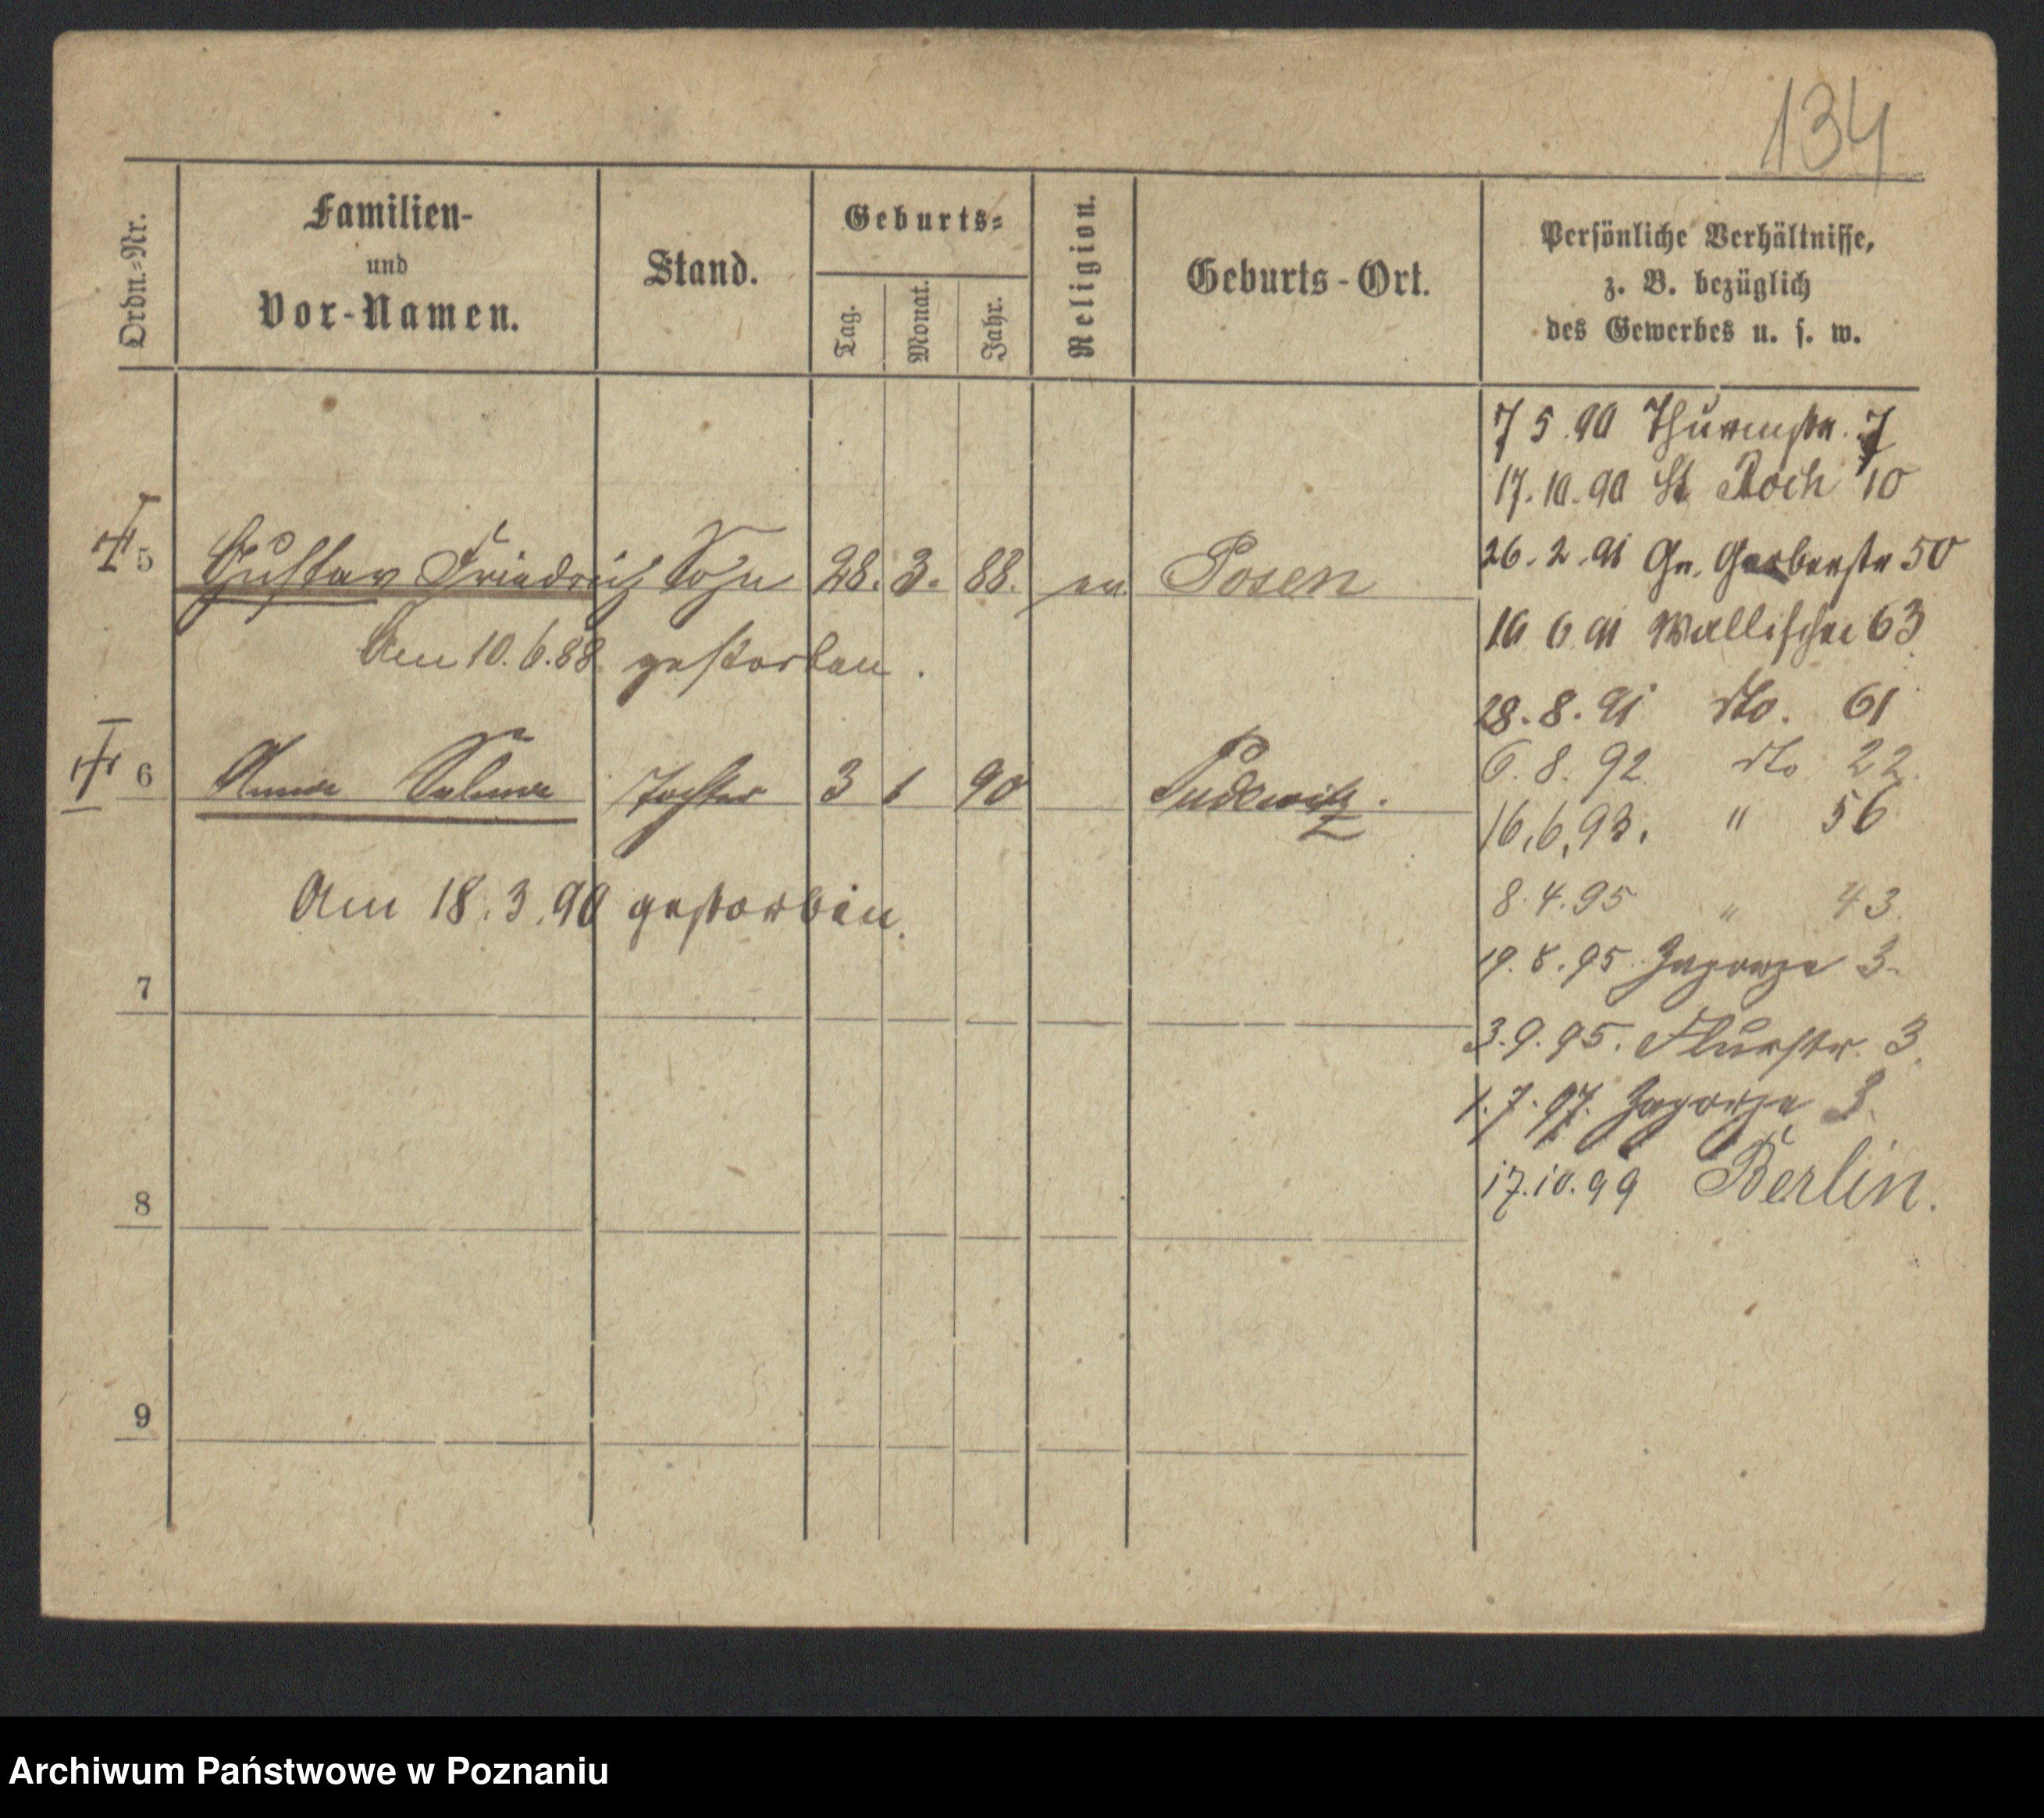 134
Ordn.-Nr.
Familien-
und
Vor-Namen.
Stand.
Geburts-
Tag.
Monat.
Jahr.
Religion.
Geburts-Ort.
Persönliche Verhältnisse,
z. B. bezüglich
des Gewerbes u. s. w.
7 5. 90 Thurmstr. 7
17. 10. 90 St Roch 10
5 Gustav Friedrich Sohn 28. 3. 88. ev Posen
26. 2. 91 Gr. Gerberstr 50
Am 10. 6. 88. gestorben.
10 6 91 Wallischei 63
28. 8. 91 dto. 61
6 Anna Selma Tochter 3 1 90 Pudewitz.
6. 8. 92. dto 22.
16. 6. 93. " 56
Am 18. 3. 90 gestorben.
8. 4. 95 " 43.
19. 8. 95. Zagorze 3.
7
3. 9. 95. Flurstr. 3.
1. 7. 97. Zagorze 3.
8
17. 10. 99 Berlin.
9
Archiwum Państwowe w Poznaniu